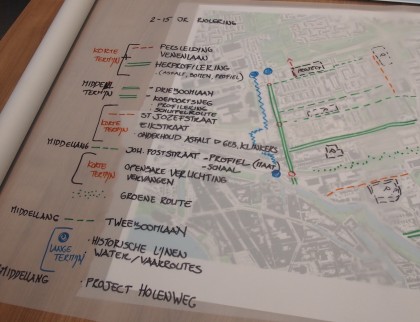 2-15 OR RIOLERING
KORTE TERMIJN
PERSLEIDING
VENENLAAN
HERPROFILERING
(ASFALT, BOMEN, PROFIEL)
MIDDEL TERMIJN
DRIEBOOMLAAN
KOEPOORTSWEG
PROFILERING
SCHUTTELROUTE
KORTE TERMIJN
ST JOZEFSTRAAT
EIKSTRAAT
ONDERHOUD ASFALT
GEB. KLINKERS
MIDDELLANG
JOH. POSTSTRAAT - PROFIEL (MAAT
- SCHAAL
KORTE TERMIJN
OPENBARE VERLICHTING
VERVANGEN
GROENE ROUTE
MIDDELLANG
TWEEBOOMLAAN
LANGE TERMIJN
· HISTORISCHE LIJNEN
WATER/VAARROUTES
MIDDELLANG
· PROJECT HOLENWEG